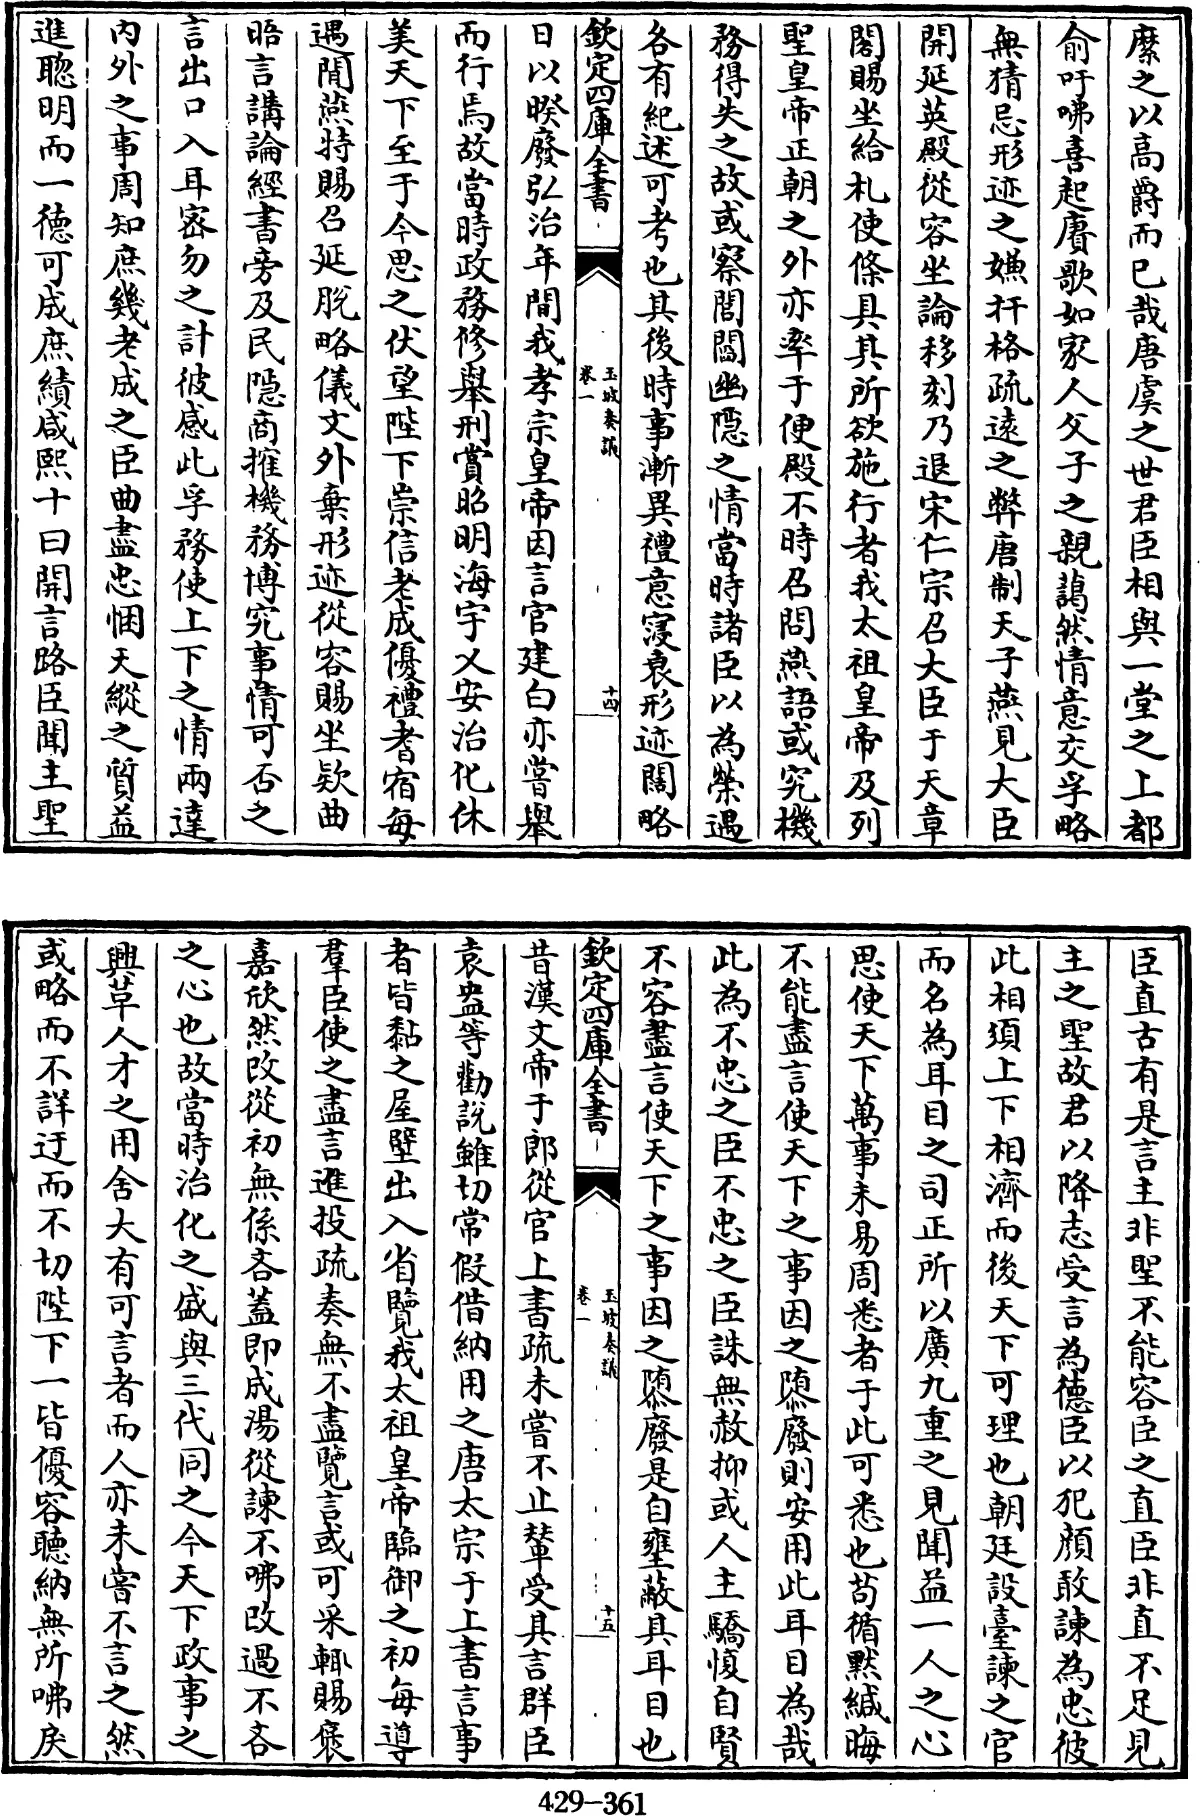 縻之以高爵而已哉唐虞之世君臣相與一堂之上都
俞吁咈喜起賡歌如家人父子之親藹然情意交孚略
無猜忌形迹之嫌扞格疏遠之弊唐制天子燕見大臣
開延英殿從容坐論移刻乃退宋仁宗召大臣于天章
閣賜坐給札使條具其所欲施行者我太祖皇帝及列
聖皇帝正朝之外亦率于便殿不時召問燕語或究機
務得失之故或察閭閻幽隱之情當時諸臣以為榮遇
各有紀述可考也其後時事漸異禮意寖衰形迹闊略
欽定四庫全書
玉坡奏議
卷一
十四
日以睽廢弘治年間我孝宗皇帝因言官建白亦嘗舉
而行焉故當時政務修舉刑賞昭明海宇乂安治化休
美天下至于今思之伏望陛下崇信老成優禮耆宿每
遇閒燕特賜召延脫略儀文外棄形迹從容賜坐欵曲
晤言講論經書旁及民隱商搉機務博究事情可否之
言出口入耳密勿之計彼感此孚務使上下之情兩達
內外之事周知庶幾老成之臣曲盡忠悃天縱之質益
進聰明而一德可成庶績咸熙十曰開言路臣聞主聖
臣直古有是言主非聖不能容臣之直臣非直不足見
主之聖故君以降志受言為德臣以犯顏敢諫為忠彼
此相須上下相濟而後天下可理也朝廷設臺諫之官
而名為耳目之司正所以廣九重之見聞益一人之心
思使天下萬事未易周悉者于此可悉也苟循默緘晦
不能盡言使天下之事因之隳廢則安用此耳目為哉
此為不忠之臣不忠之臣誅無赦抑或人主驕愎自賢
不容盡言使天下之事因之隳廢是自壅蔽其耳目也
欽定四庫全書
玉坡奏議
卷一
十五
昔漢文帝于郎從官上書疏未嘗不止輦受其言群臣
袁盎等勸說雖切常假借納用之唐太宗于上書言事
者皆黏之屋壁出入省覽我太祖皇帝臨御之初每導
羣臣使之盡言進投疏奏無不盡覽言或可采輒賜褒
嘉欣然改從初無係吝蓋即成湯從諫不咈改過不吝
之心也故當時治化之盛與三代同之今天下政事之
興革人才之用舍大有可言者而人亦未嘗不言之然
或略而不詳迂而不切陛下一皆優容聽納無所咈戾
429-361